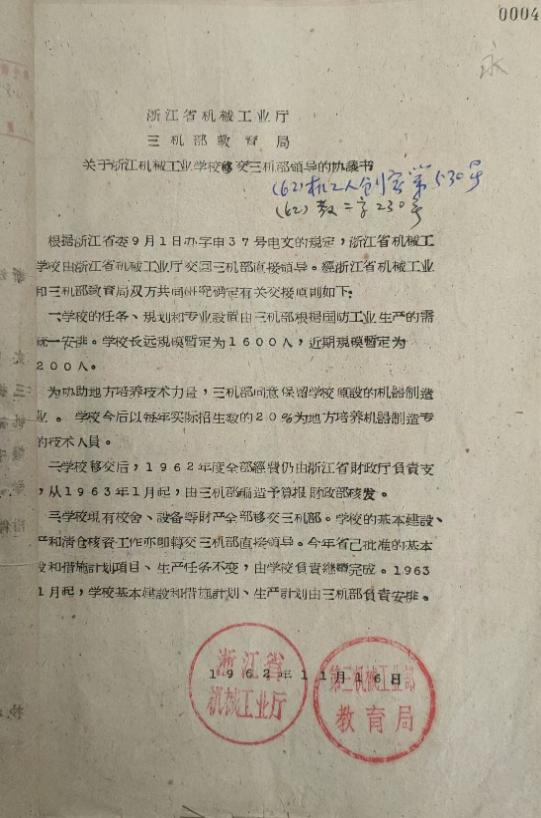 0004
永
浙江省机械工业厅
三机部教育局
关于浙江机械工业学校移交三机部领导的协议书
(62)机工人创字第530号
(62)教二字230号
根据浙江省委9月1日办字申37号电文的规定，浙江省机械工
学校由浙江省机械工业厅交回三机部直接领导。經浙江省机械工业
和三机部教育局双方共同研究确定有关交接原则如下：
一学校的任务、規划和专业設置由三机部根据国防工业生产的需
一安排。学校长远規模暫定为1600人，近期規模暫定为
200人。
为协助地方培养技术力量，三机部同意保留学校原設的机器制造
业。学校今后以每年实际招生数的20%为地方培养机器制造专
的技术人員。
二学校移交后，1962年度全部經費仍由浙江省財政厅負責支
，从1963年1月起，由三机部編造予算报財政部核发。
三学校現有校舍、設备等財产全部移交三机部。学校的基本建設、
产和清仓核資工作亦即移交三机部直接領导。今年省已批准的基本
設和措施計划項目、生产任务不变，由学校負責継續完成。1963
1月起，学校基本建設和措施計划、生产計划由三机部負責安排。
1962年11月16日
浙江省
机械工业厅
第三机械工业部
教育局